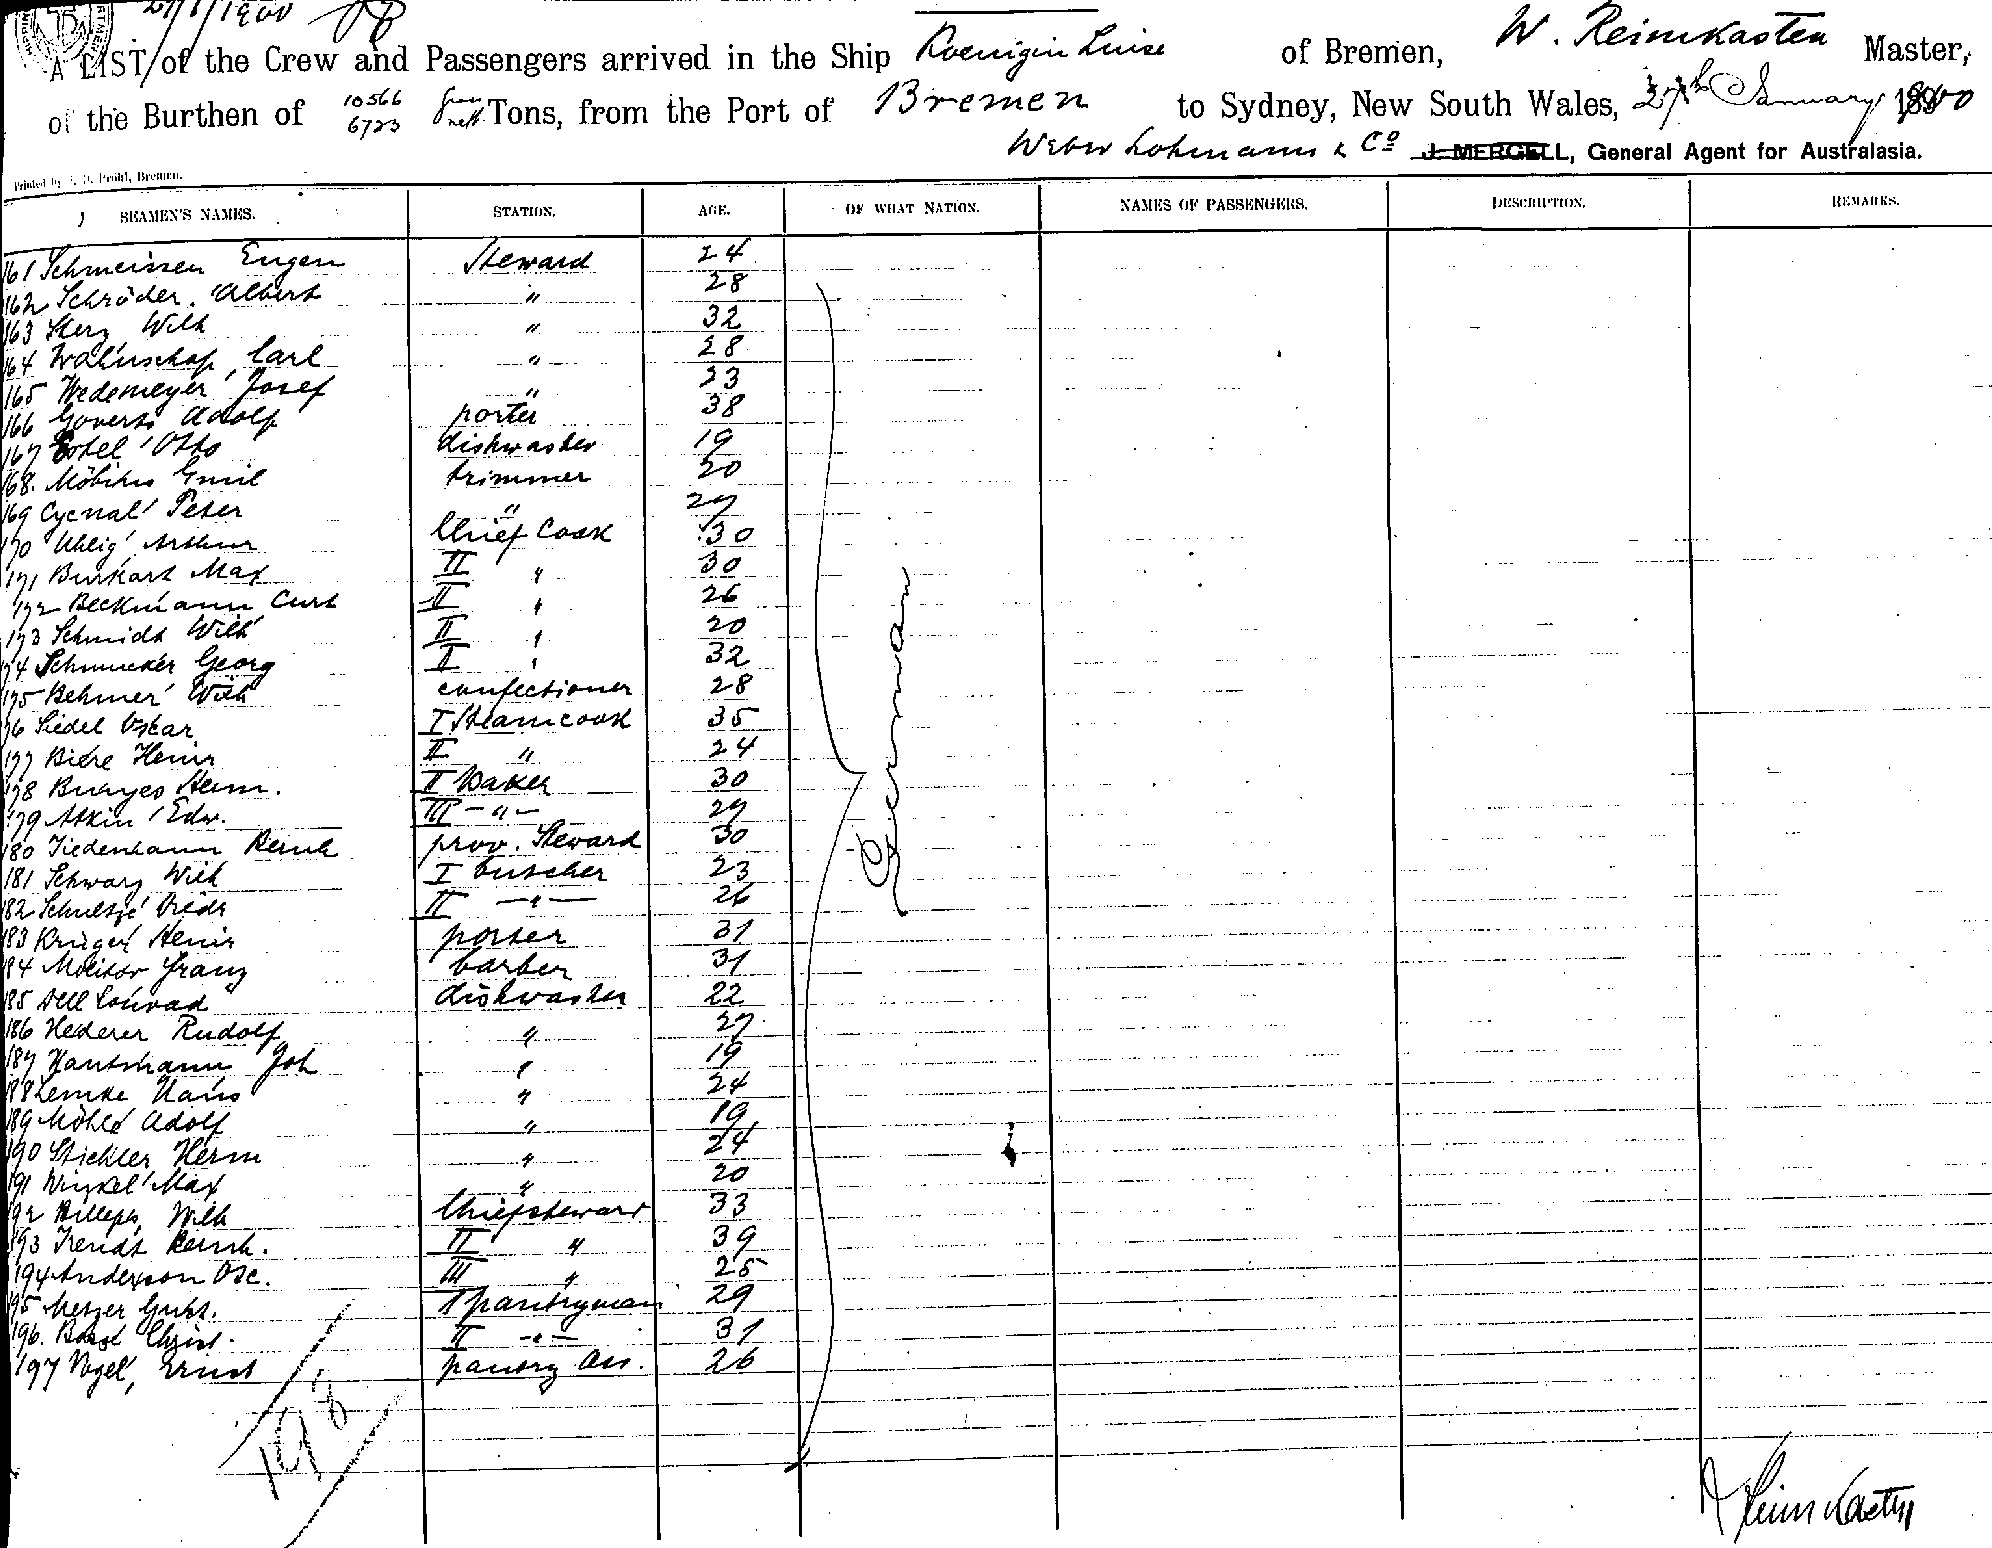 27/1/1900
A LIST of the Crew and Passengers arrived in the Ship Koenigin Luise of Bremen, W. Reimkasten Master,
of the Burthen of 10566 6723 Tons, from the Port of Bremen to Sydney, New South Wales, 27th January 1900
Weber Lohmann & Co J. MERGELL, General Agent for Australasia.
Printed by Bremen.
SEAMEN'S NAMES. STATION. AGE. OF WHAT NATION. NAMES OF PASSENGERS. DESCRIPTION. REMARKS.
161 Schmeissen Eugen Steward 24
162 Schröder. Albert " 28
163 Sterz Wilh " 32
164 Carl " 28
165 Wedemeyer Josef " 23
166 Goverts Adolf porter 38
167 Ertel Otto dishwasher 19
168. Möbius Emil trimmer 20
169 Cycnal Peter " 27
170 Uhlig Arthur Chief Cook 30
171 Burkart Max II " 30
172 Beckmann Curt II " 26
173 Schmidt Wilh II " 20
174 Schmucker Georg II " 32
175 Behmer Wilh confectioner 28
176 Siedel Oskar I Steamcook 35
177 Biere Heinr II " 24
178 Herm. II Baker 30
179 Atkin Edw. III -"- 29
180 Tiedemann Reinh prov. Steward 30
181 Schwarz Wilh I butcher 23
182 Schultze Diedr II -"- 26
183 Krüger Heinr porter 31
184 Molitor Franz barber 31
185 Dell Conrad dishwasher 22
186 Hederer Rudolf " 27
187 Hantsmann Joh " 19
188 Lemke Hans " 24
189 Möhle Adolf " 19
190 Stickler Herm " 24
191 Winkel Max " 20
192 Billeps, Wilh Chiefsteward 33
193 Trendt Reinh. II " 39
194 Anderson Osc. III " 25
195 Metzer Gust. I pantryman 29
196. Christ. II -"- 31
197 Vogel, Ernst pantry Ass. 26
German
198
Reimkasten